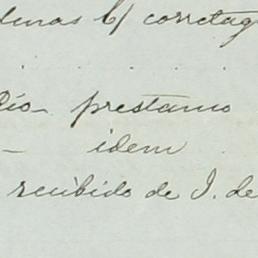 c/ corretag
prestamo
— idem
recibido de J. de